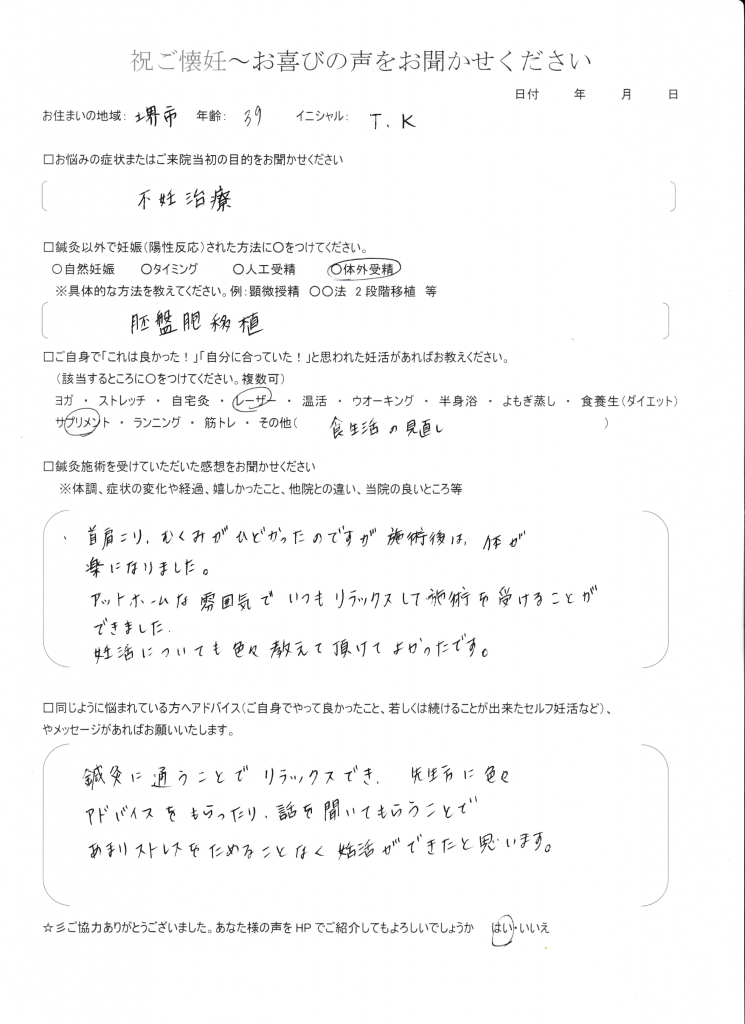 祝ご懐妊～お喜びの声をお聞かせください
日付　　年　　月　　日
お住まいの地域： 堺市　年齢： 39　イニシャル： T.K
□お悩みの症状またはご来院当初の目的をお聞かせください
不妊治療
□鍼灸以外で妊娠（陽性反応）された方法に○をつけてください。
○自然妊娠　○タイミング　○人工受精　○体外受精
※具体的な方法を教えてください。例：顕微授精　○○法　2段階移植　等
胚盤胞移植
□ご自身で「これは良かった！」「自分に合っていた！」と思われた妊活があればお教えください。
（該当するところに○をつけてください。複数可）
ヨガ ・ ストレッチ ・ 自宅灸 ・ レーザー ・ 温活 ・ ウオーキング ・ 半身浴 ・ よもぎ蒸し ・ 食養生（ダイエット）
サプリメント ・ ランニング ・ 筋トレ ・ その他（　食生活の見直し　）
□鍼灸施術を受けていただいた感想をお聞かせください
※体調、症状の変化や経過、嬉しかったこと、他院との違い、当院の良いところ等
・首肩こり、むくみがひどかったのですが施術後は、体が
楽になりました。
アットホームな雰囲気でいつもリラックスして施術を受けることが
できました。
妊活についても色々教えて頂けてよかったです。
□同じように悩まれている方へアドバイス（ご自身でやって良かったこと、若しくは続けることが出来たセルフ妊活など）、
やメッセージがあればお願いいたします。
鍼灸に通うことでリラックスでき、先生方に色々
アドバイスをもらったり、話を聞いてもらうことで
あまりストレスをためることなく妊活ができたと思います。
☆彡ご協力ありがとうございました。あなた様の声をHPでご紹介してもよろしいでしょうか　はい・いいえ